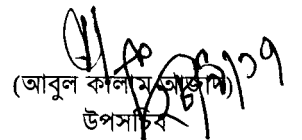 (আবুল কালাম আজাদ)
উপসচিব